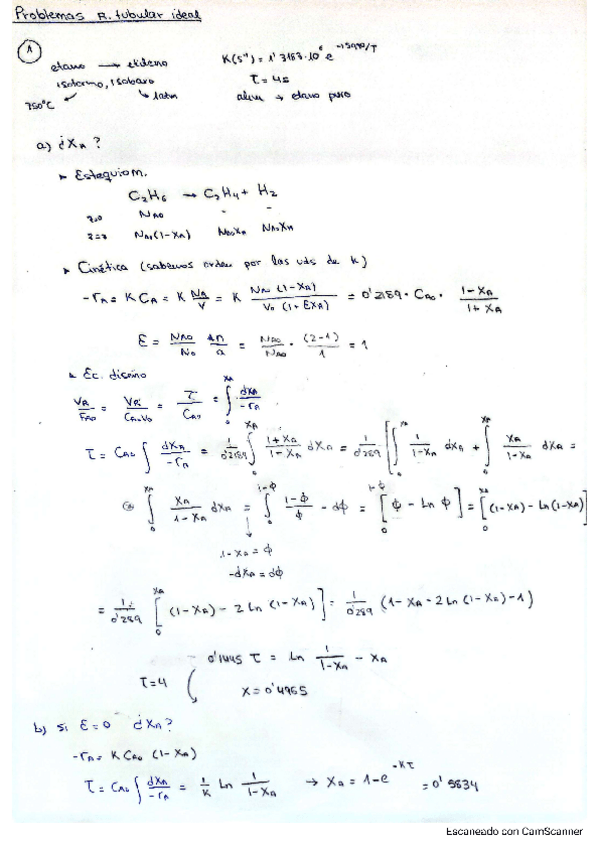 Problemas R. tubular ideal
1
etano → etileno
K(s⁻¹) = 1'3153·10⁶ e
isotermo, isobaro
τ = 4s
750°C
1atm
alim → etano puro
a) ¿XA?
▸ Estequiom.
C2H6 → C2H4 + H2
NA0 - -
NA0(1-XA) NA0XA NA0XA
▸ Cinética (sabemos orden por las uds de K)
-rA = K CA = K NA/V = K NA0 (1-XA) / V0 (1+EXA) = 0'289 · CA0 · 1-XA / 1+XA
E = NA0/N0 Δn/a = NA0/NA0 · (2-1)/1 = 1
▸ Ec. diseño
VR/FA0 = VR/CA0V0 = τ/CA0 = ∫0^XA dXA/-rA
τ = CA0 ∫ dXA/-rA = 1/0'289 ∫0^XA 1+XA/1-XA dXA = 1/0'289 [∫0^XA 1/1-XA dXA + ∫0^XA XA/1-XA dXA =
∫0^XA XA/1-XA dXA = ∫0^1-ϕ 1-ϕ/ϕ -dϕ = [ϕ - Ln ϕ]0^1-ϕ = [(1-XA) - Ln(1-XA)]0^XA
1-XA = ϕ
-dXA = dϕ
= 1/0'289 [(1-XA) - 2Ln(1-XA)]0^XA = 1/0'289 (1-XA-2Ln(1-XA)-1)
0'1445 τ = Ln 1/1-XA - XA
τ=4
X = 0'4965
b) si E=0 ¿XA?
-rA = K CA0 (1-XA)
τ = CA0 ∫ dXA/-rA = 1/K Ln 1/1-XA → XA = 1-e^-Kτ = 0'5834
Escaneado con CamScanner